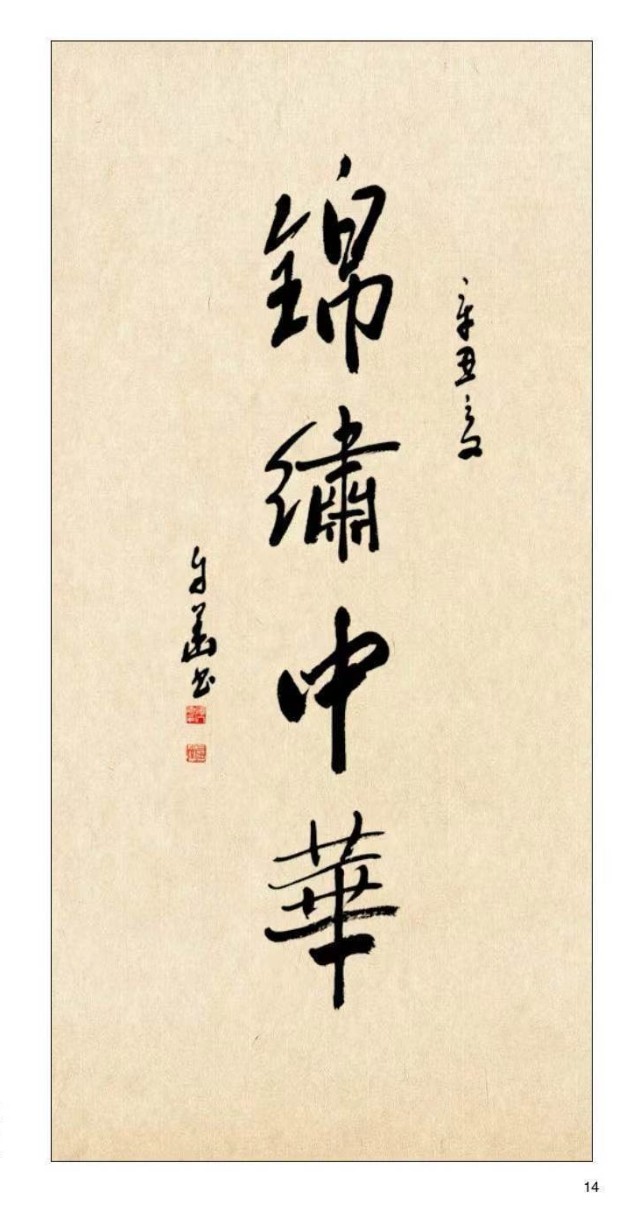 辛丑夏
錦繡中華
书
14